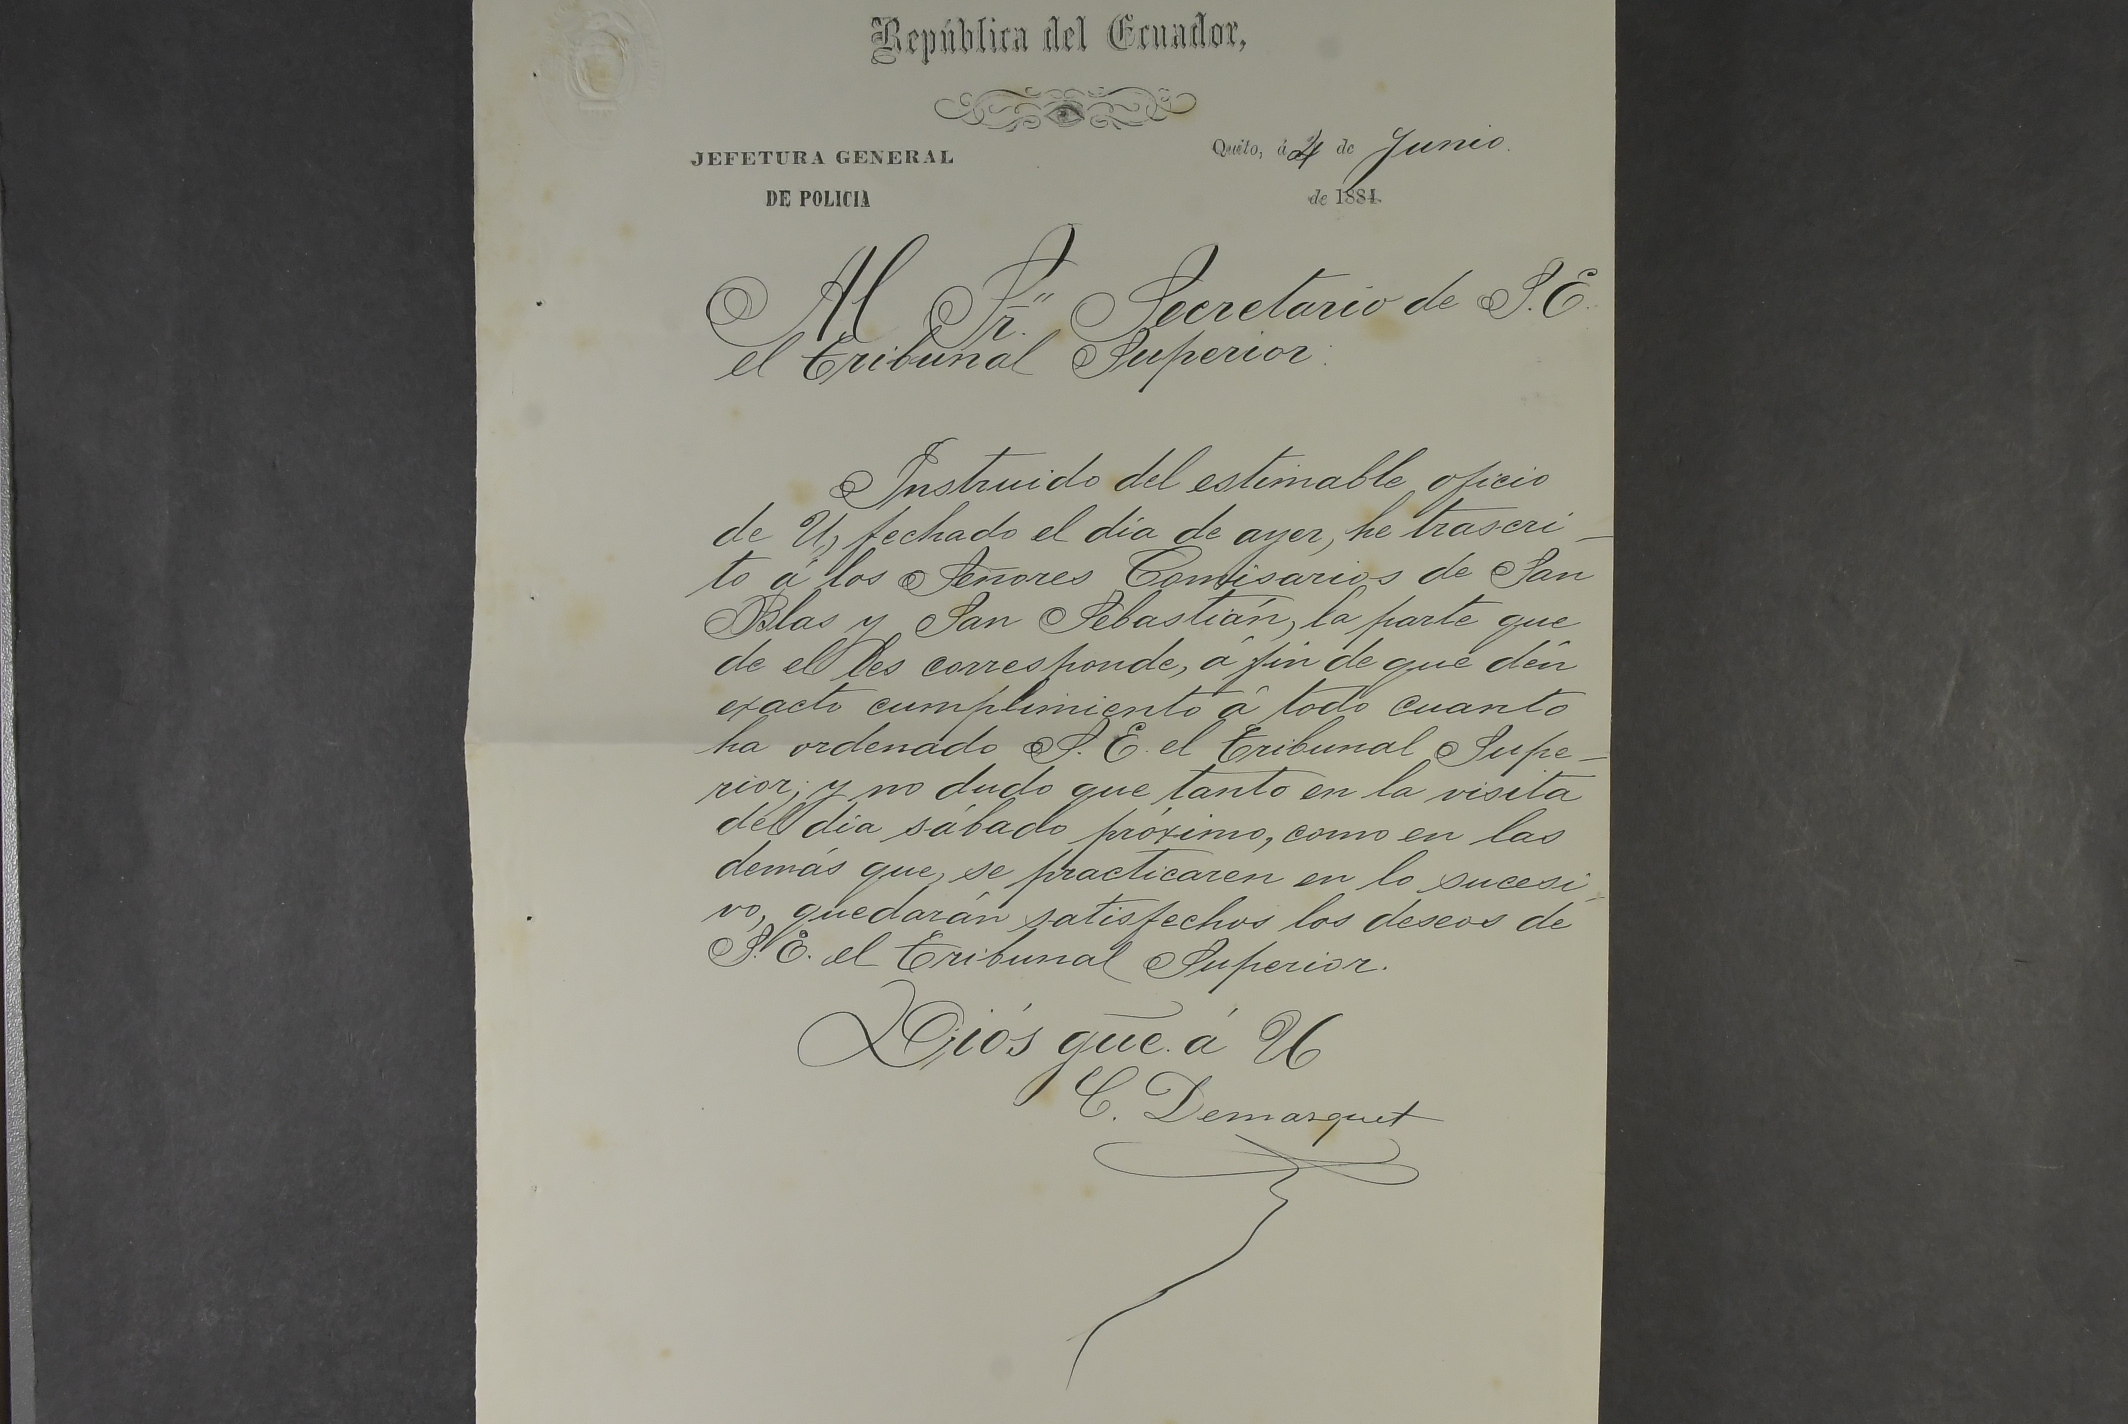 República del Ecuador,
JEFETURA GENERAL
DE POLICIA
Quito, á 4 de Junio.
de 1881.
Al Sr. Secretario de S. E.
el Tribunal Superior.
Instruido del estimable oficio
de U, fechado el día de ayer, he trascri-
to á los Señores Comisarios de San
Blas y San Sebastián, la parte que
de el les corresponde, á fin de que dén
exacto cumplimiento á todo cuanto
ha ordenado S. E. el Tribunal Supe-
rior; y no dudo que tanto en la visita
del día sábado próximo, como en las
demás que, se practicaren en lo sucesi-
vo, quedarán satisfechos los deseos de
S. E. el Tribunal Superior.
Diós gūe. á U
C. Demarquet